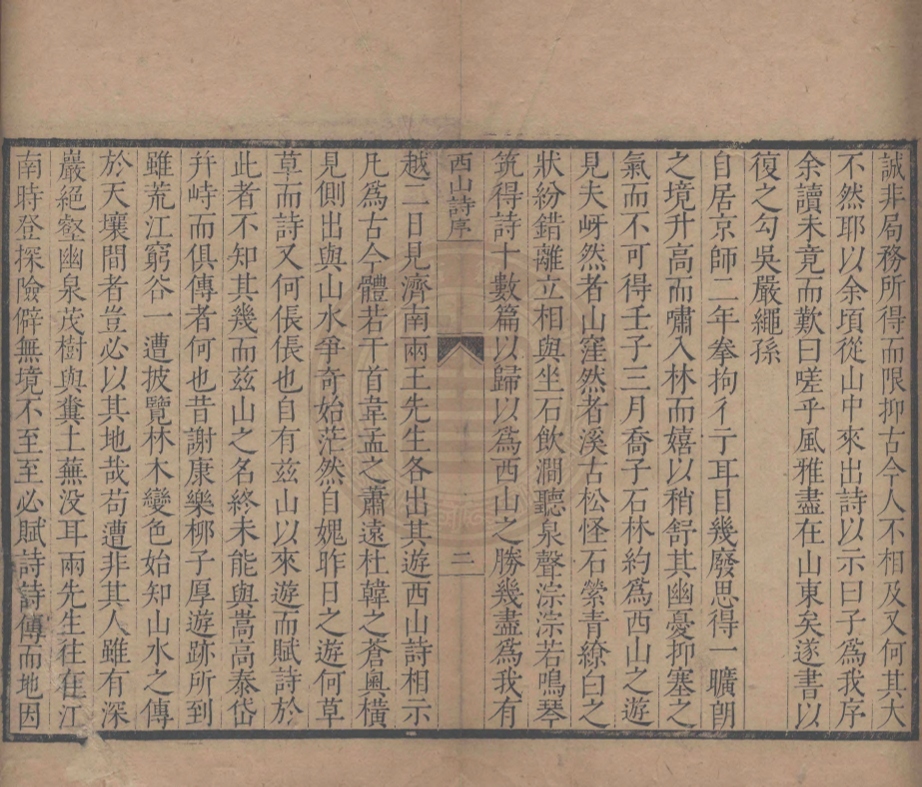 誠非局務所得而限抑古今人不相及又何其大
不然耶以余頃從山中來出詩以示曰子為我序
余讀未竟而歎曰嗟乎風雅盡在山東矣遂書以
復之勾吳嚴繩孫
自居京師二年拳拘彳亍耳目幾廢思得一曠朗
之境升高而嘯入林而嬉以稍舒其幽憂抑塞之
氣而不可得壬子三月喬子石林約爲西山之遊
見夫岈然者山窪然者溪古松怪石縈青繚白之
狀紛錯離立相與坐石飲澗聽泉聲淙淙若鳴琴
筑得詩十數篇以歸以爲西山之勝幾盡爲我有
西山詩序 二
越二日見濟南兩王先生各出其遊西山詩相示
凡爲古今體若干首韋孟之蕭遠杜韓之蒼奧橫
見側出與山水爭奇始茫然自媿昨日之遊何草
草而詩又何倀倀也自有兹山以來遊而賦詩於
此者不知其幾而兹山之名終未能與嵩高泰岱
幷峙而俱傳者何也昔謝康樂栁子厚遊跡所到
雖荒江窮谷一遭披覽林木變色始知山水之傳
於天壤間者豈必以其地哉苟遭非其人雖有深
巖絕壑幽泉茂樹與糞土蕪没耳兩先生往在江
南時登探險僻無境不至至必賦詩詩傳而地因